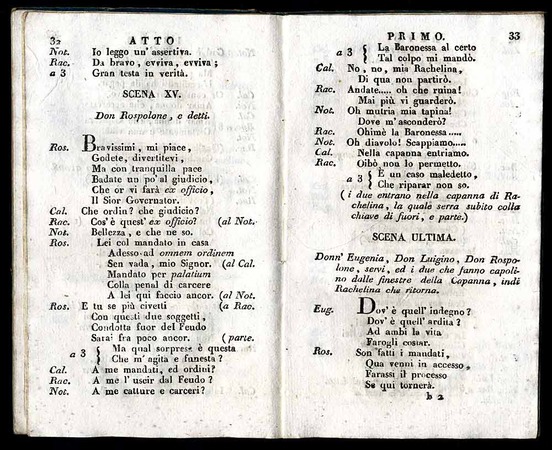 32 ATTO
Not. Io leggo un' assertiva.
Rac. Da bravo, evviva, evviva;
a 3 Gran testa in verità.
SCENA XV.
Don Rospolone, e detti.
Ros. Bravissimi, mi piace,
Godete, divertitevi,
Ma con tranquilla pace
Badate un po' al giudicio,
Che or vi farà ex officio,
Il Sior Governator.
Cal. Che ordin? che giudicio?
Rac. Cos'è quest' ex officio? (al Not.
Not. Bellezza, e che ne so.
Ros. Lei col mandato in casa
Adesso ad omnem ordinem
Sen vada, mio Signor. (al Cal.
Mandato per palatium
Colla penal di carcere
A lei qui faccio ancor. (al Not.
Ros. E tu se più civetti (a Rac.
Con questi due soggetti,
Condotta fuor del Feudo
Sarai fra poco ancor. (parte.
a 3 { Ma qual sorpresa è questa
Che m'agita e funesta?
Cal. A me mandati, ed ordini?
Rac. A me l'uscir dal Feudo?
Not. A me catture e carceri?
PRIMO. 33
a 3 { La Baronessa al certo
Tal colpo mi mandò.
Cal. No, no, mia Rachelina,
Di qua non partirò.
Rac. Andate..... oh che ruina!
Mai più vi guarderò.
Not. Oh mutria mia tapina!
Dove m'asconderò?
Rac. Ohimè la Baronessa.....
Not. Oh diavolo! Scappiamo.....
Cal. Nella capanna entriamo.
Rac. Oibò non lo permetto.
a 3 { È un caso maledetto,
Che riparar non so.
(i due entrano nella capanna di Ra-
chelina, la quale serra subito colla
chiave di fuori, e parte.)
SCENA ULTIMA.
Donn' Eugenia, Don Luigino, Don Rospo-
lone, servi, ed i due che fanno capoli-
no dalle finestre della Capanna, indi
Rachelina che ritorna.
Eug. Dov' è quell' indegno?
Dov' è quell' ardita?
Ad ambi la vita
Farogli costar.
Ros. Son fatti i mandati,
Qua venni in accesso,
Farassi il processo
Se qui tornerà.
b 2